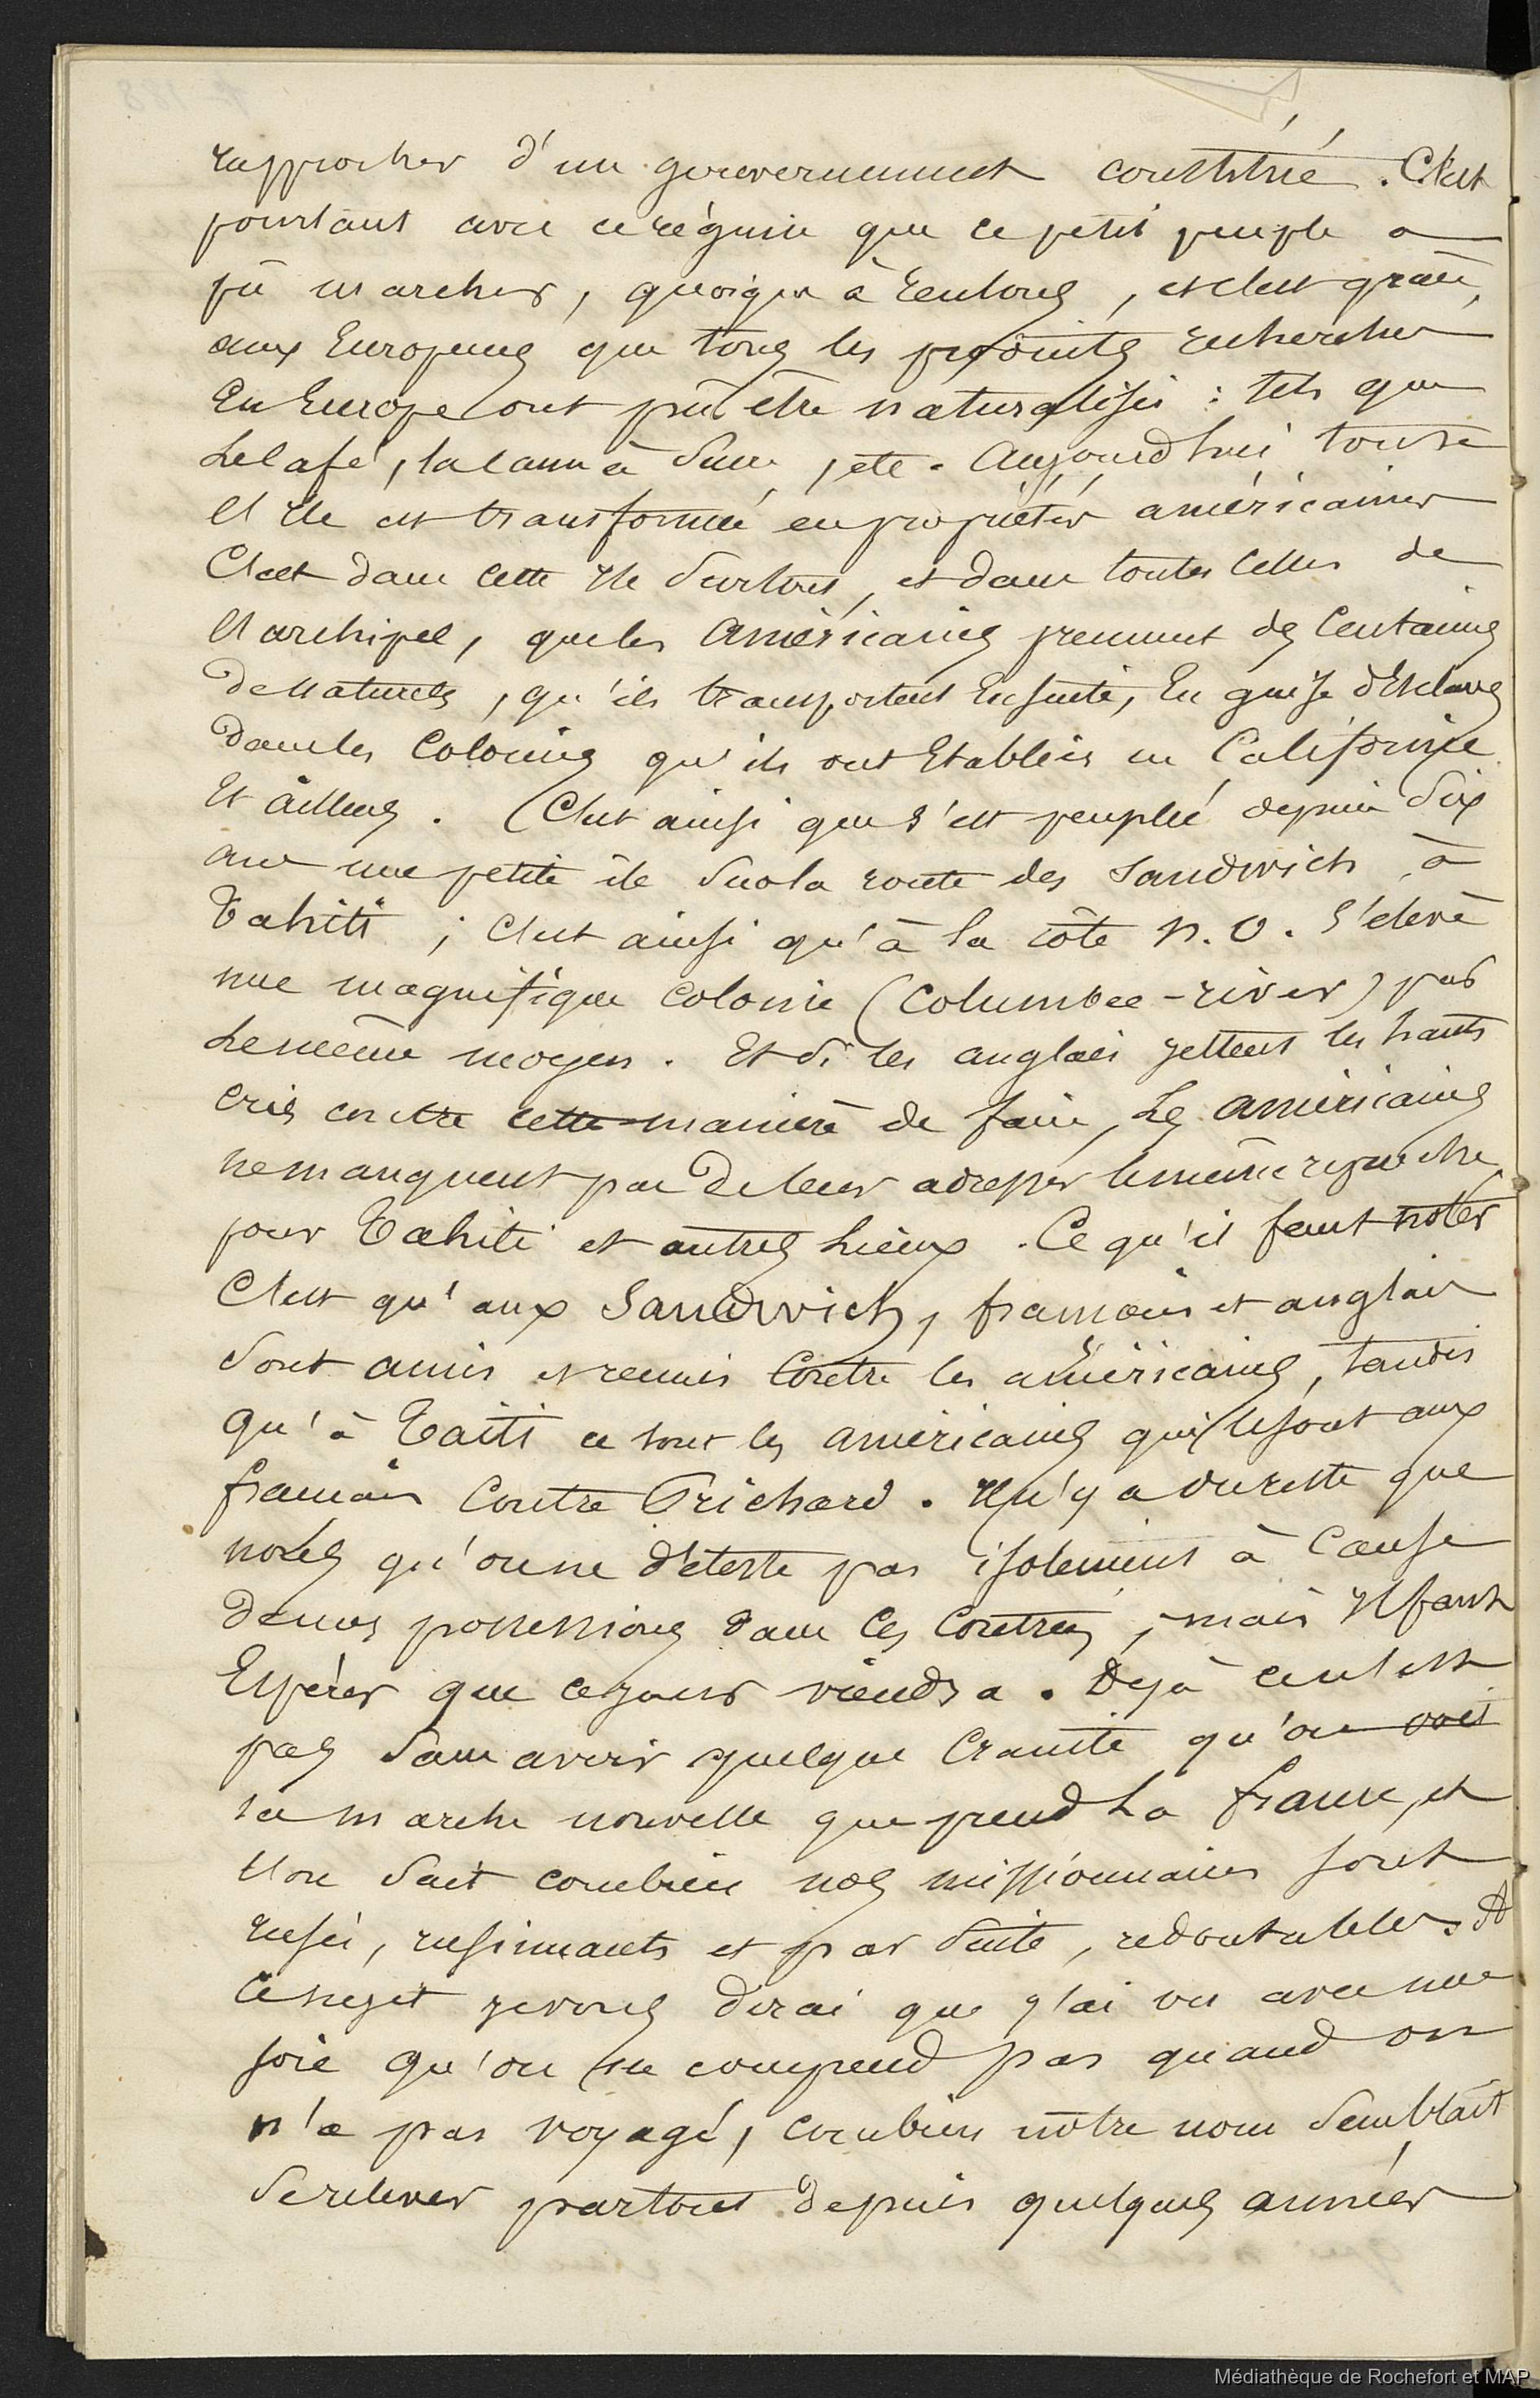 rapprocher d'un gouvernement constitué. C'est
pourtant avec ce régime que ce petit peuple a
pû marcher, quoique à reculons, et c'est grâce
aux Européens que tous les produits recherchés
En Europe ont pû être naturalisés : tels que
Le Café, la Canne à Sucre, etc. Aujourd'hui toute
l'Ile est transformée en propriétés américaines
C'est dans cette Ile Surtout, et dans toutes Celles de
l'archipel, que les Américains prennent des Centaines
de Naturels, qu'ils transportent Ensuite, En guise d'Esclaves
dans les Colonies qu'ils ont Etablies en Californie
Et ailleurs. (C'est ainsi que s'est peuplée depuis dix
ans une petite île Sur la route des Sandwich à
Tahiti ; C'est ainsi qu'à la côte N.O. S'élève
une magnifique Colonie (Columbee-river) par
Le même moyen. Et Si les anglais jettent les hauts
cris contre cette manière de faire, Les américains
ne manquent pas De leur adresser le même reproche
pour Tahiti et autres Lieux. Ce qu'il faut noter
C'est qu'aux Sandwich, français et anglais
Sont amis et réunis Contre les américains, tandis
qu'à Taïti ce sont les américains qui le sont aux
français Contre Prichard. Il n'y a du reste que
nous qu'on ne déteste pas isolément à Cause
De nos possessions dans Ces Contrées ; mais Il faut
Espérer que ce jour viendra. Déjà ce n'est
pas Sans avoir quelque Crainte qu'on voit
la marche nouvelle que prend La france, et
l'on Sait combien nos missionnaires Sont
rusés, insinuants et par Suite, redoutables. A
Ce sujet je vous dirai que j'ai vu avec une
joie qu'on ne comprend pas quand on
n'a pas voyagé, combien nôtre nom Semblait
Se relever partout depuis quelques années
Médiathèque de Rochefort et MAP